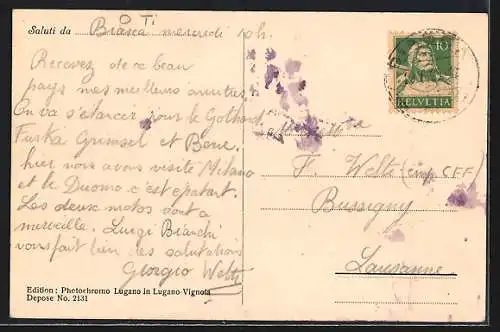 O Ti
Saluti da Biasca mercredi ph.
Recevez de ce beau
pays mes meilleurs amities
On va s'élancer pour le Gothard
Furka Grimsel et Bern.
hier nous avons visité Milano
et le Duomo c'est épatant.
Les deux motos vont a
merveille. Luigi Bianchi
vous fait bien des salutations
Giorgio Welti
Edition: Photochromo Lugano in Lugano-Vignola
Depose No. 2131
10
HELVETIA
F. Welti (empl CFF)
Bussigny
Lausanne